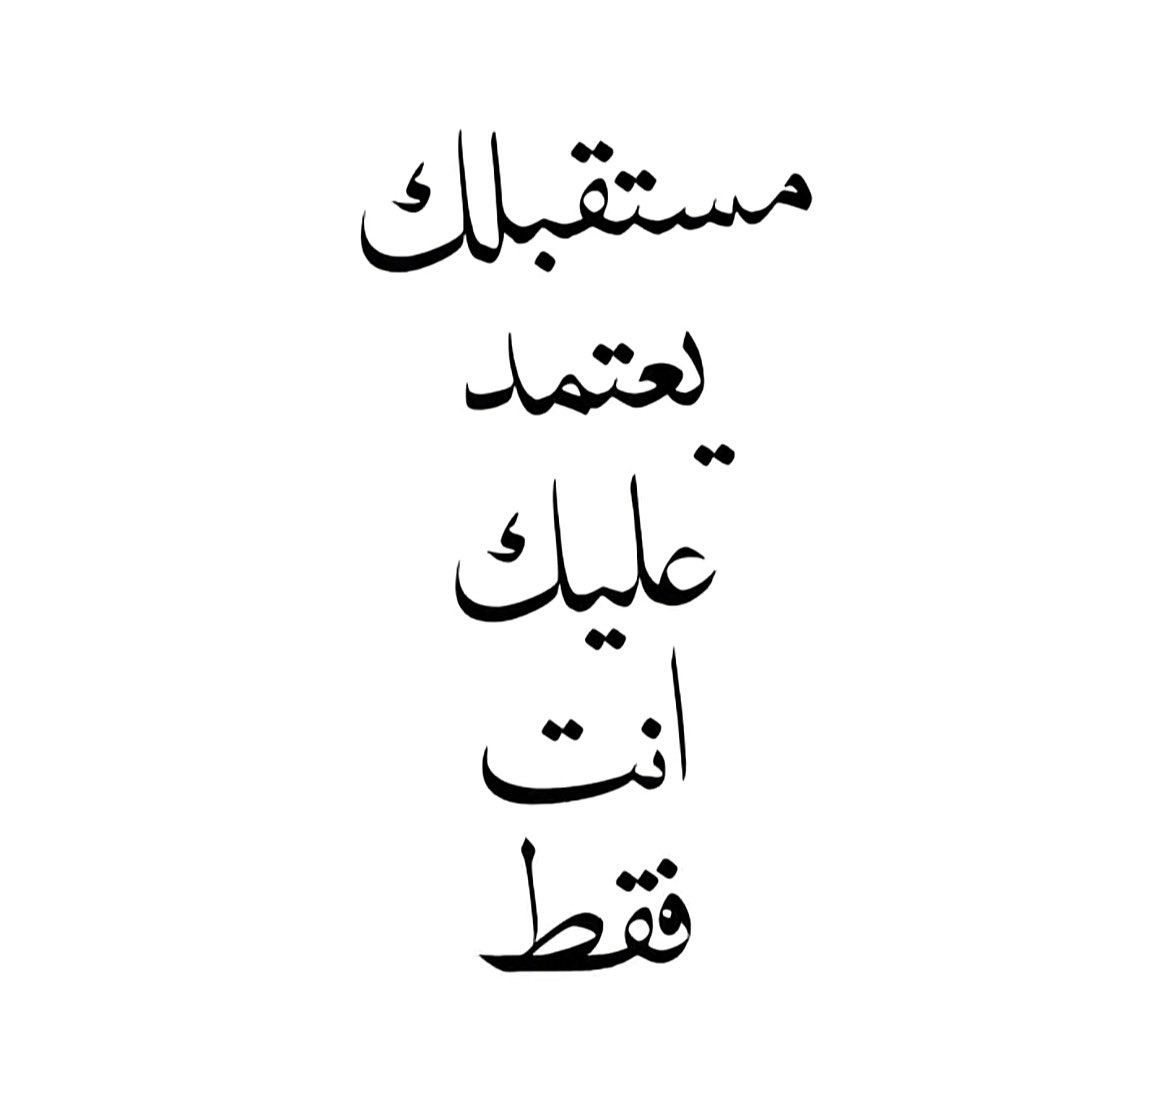 مستقبلك
يعتمد
عليك
انت
فقط